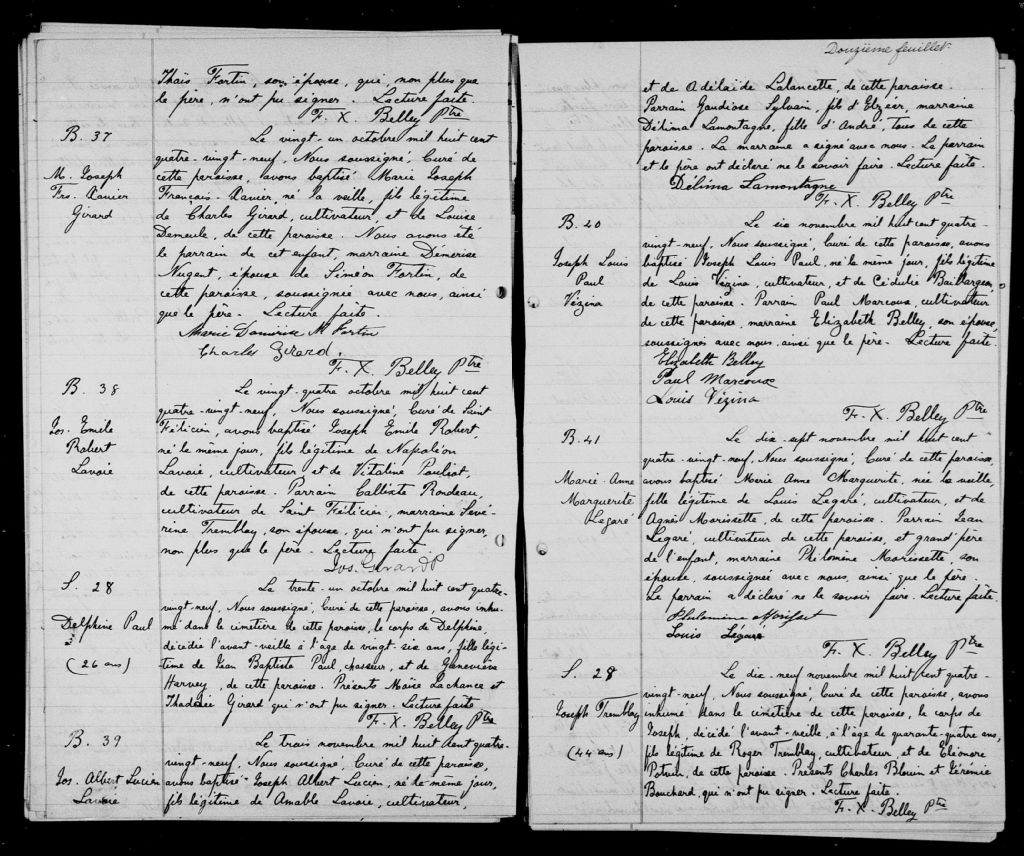 Thaïs Fortin, son épouse, qui, non plus que
le père, n'ont pu signer. Lecture faite.
F. X. Belley Ptre
B. 37
M. Joseph
Frs. Xavier
Girard
Le vingt-un octobre mil huit cent
quatre-vingt-neuf, Nous soussigné, Curé de
cette paroisse, avons baptisé Marie Joseph
François-Xavier, né la veille, fils légitime
de Charles Girard, cultivateur, et de Louise
Demeule, de cette paroisse. Nous avons été
le parrain de cet enfant, marraine Démerise
Nugent, épouse de Siméon Fortin, de
cette paroisse, soussignée avec nous, ainsi
que le père. Lecture faite.
Marie Damirise N Fortin
Charles Girard.
F. X. Belley Ptre
B. 38
Jos. Emile
Robert
Lavoie
Le vingt-quatre octobre mil huit cent
quatre-vingt-neuf, Nous soussigné, Curé de Saint
Félicien, avons baptisé Joseph Emile Robert,
né le même jour, fils légitime de Napoléon
Lavoie, cultivateur et de Vitaline Pauliot,
de cette paroisse. Parrain Calliste Rondeau,
cultivateur de Saint Félicien, marraine Séve-
rine Tremblay, son épouse, qui n'ont pu signer,
non plus que le père. Lecture faite.
Jos. Girard P
S. 28
Delphine Paul
(26 ans)
Le trente-un octobre mil huit cent quatre-
vingt-neuf, Nous soussigné, Curé de cette paroisse, avons inhu-
mé dans le cimetière de cette paroisse, le corps de Delphine,
décédée l'avant-veille à l'âge de vingt-six ans, fille légi-
time de Jean Baptiste Paul, chasseur, et de Geneviève
Harvey, de cette paroisse. Présents Moïse Lachance et
Thadésée Girard qui n'ont pu signer. Lecture faite
F. X. Belley Ptre
B. 39
Jos. Albert Lucien
Lavoie
Le trois novembre mil huit cent quatre-
vingt-neuf. Nous soussigné, Curé de cette paroisse,
avons baptisé Joseph Albert Lucien, né le même jour,
fils légitime de Amable Lavoie, cultivateur,
Douzième feuillet
et de Adélaïde Lalancette, de cette paroisse.
Parrain Gaudiose Sylvain, fils d'Elzéar, marraine
Délima Lamontagne, fille d'André, Tous de cette
paroisse. La marraine a signé avec nous. Le parrain
et le père ont déclaré ne le savoir faire. Lecture faite.
Délima Lamontagne
F. X. Belley Ptre
B. 40
Joseph Louis
Paul
Vézina
Le six novembre mil huit cent quatre-
vingt-neuf, Nous soussigné, Curé de cette paroisse, avons
baptisé Joseph Louis Paul, né la même jour, fils légitime
de Louis Vézina, cultivateur, et de Cédulie Baillargeon,
de cette paroisse. Parrain Paul Marcoux, cultivateur
de cette paroisse, marraine Elizabeth Belley, son épouse,
soussignés avec nous, ainsi que le père. Lecture faite.
Elizabeth Belley
Paul Marcoux
Louis Vézina
F. X. Belley Ptre
B. 41
Marie-Anne
Marguerite
Legaré
Le dix-sept novembre mil huit cent
quatre-vingt-neuf, Nous soussigné, Curé de cette paroisse,
avons baptisé Marie Anne Marguerite, née la veille,
fille légitime de Louis Legaré, cultivateur, et de
Agnès Morissette, de cette paroisse. Parrain Jean
Legaré, cultivateur de cette paroisse, et grand'père
de l'enfant, marraine Philomène Morissette, son
épouse, soussignée avec nous, ainsi que le père.
Le parrain a déclaré ne le savoir faire. Lecture faite.
Louis Légaré
F. X. Belley Ptre
S. 28
Joseph Tremblay
(44 ans)
Le dix-neuf novembre mil huit cent quatre-
vingt-neuf, Nous soussigné, Curé de cette paroisse, avons
inhumé dans le cimetière de cette paroisse, le corps de
Joseph, décédé l'avant-veille, à l'âge de quarante-quatre ans,
fils légitime de Roger Tremblay, cultivateur, et de Eléonore
Potvin, de cette paroisse. Présents Charles Blouin et Jérémie
Bouchard, qui n'ont pu signer. Lecture faite.
F. X. Belley Ptre